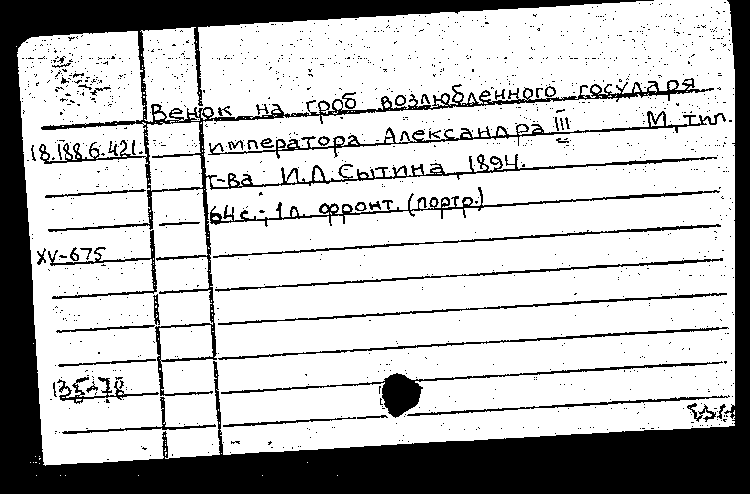 Венок на гроб возлюбленного государя
18.188.6.421. императора Александра III М, тип.
т-ва И.Д.Сытина, 1894.
64 с.; 1 л. фронт. (портр.)
XV-675
135-78